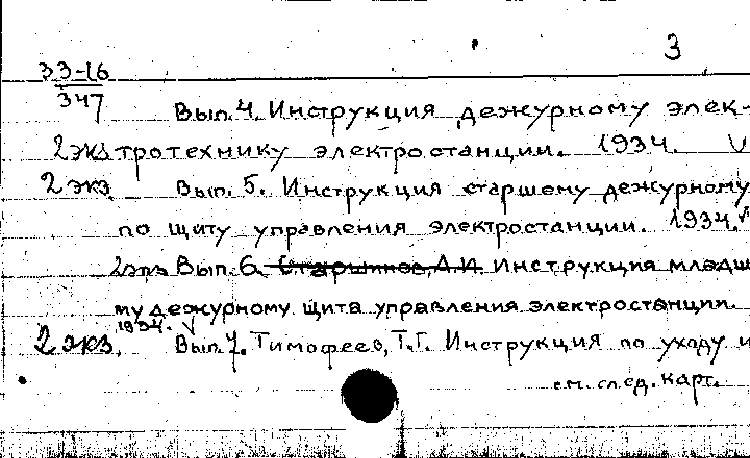 3
33-16
347
Вып. 4. Инструкция дежурному элек-
2 экз тротехнику электростанции. 1934. V
2 экз Вып. 5. Инструкция старшему дежурному
по щиту управления электростанции. 1934. V
2 экз Вып. 6. Старшинов, А.И. Инструкция младш
му дежурному щита управления электростанции.
1934. V
2 экз. Вып. 7. Тимофеев, Т.Г. Инструкция по уходу и
см. след. карт.